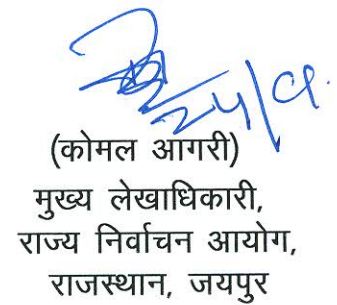 (कोमल आगरी)
मुख्य लेखाधिकारी,
राज्य निर्वाचन आयोग,
राजस्थान, जयपुर